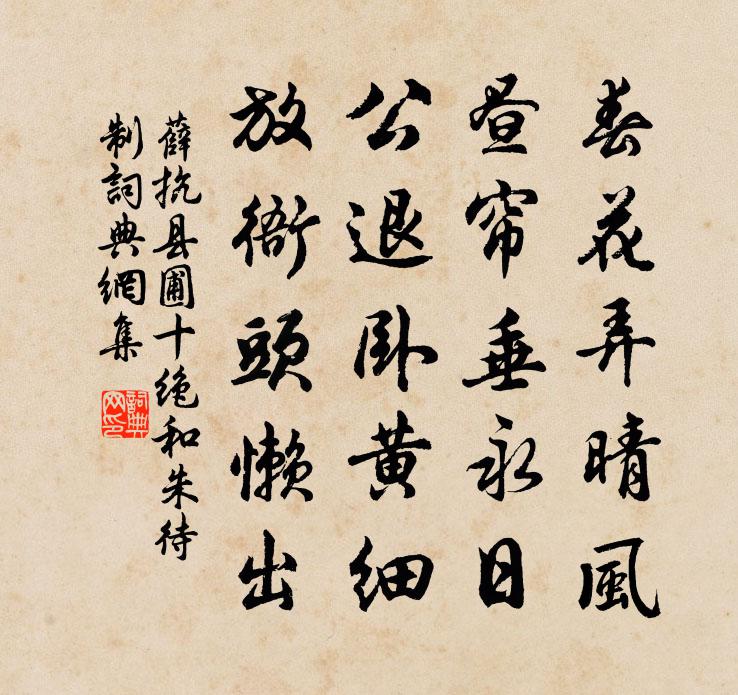 春花弄晴風
昼帘垂永日
公退卧黄细
放衙頭懒出
薛抗县圃十绝和朱待
制詞典網集
詞典
网印